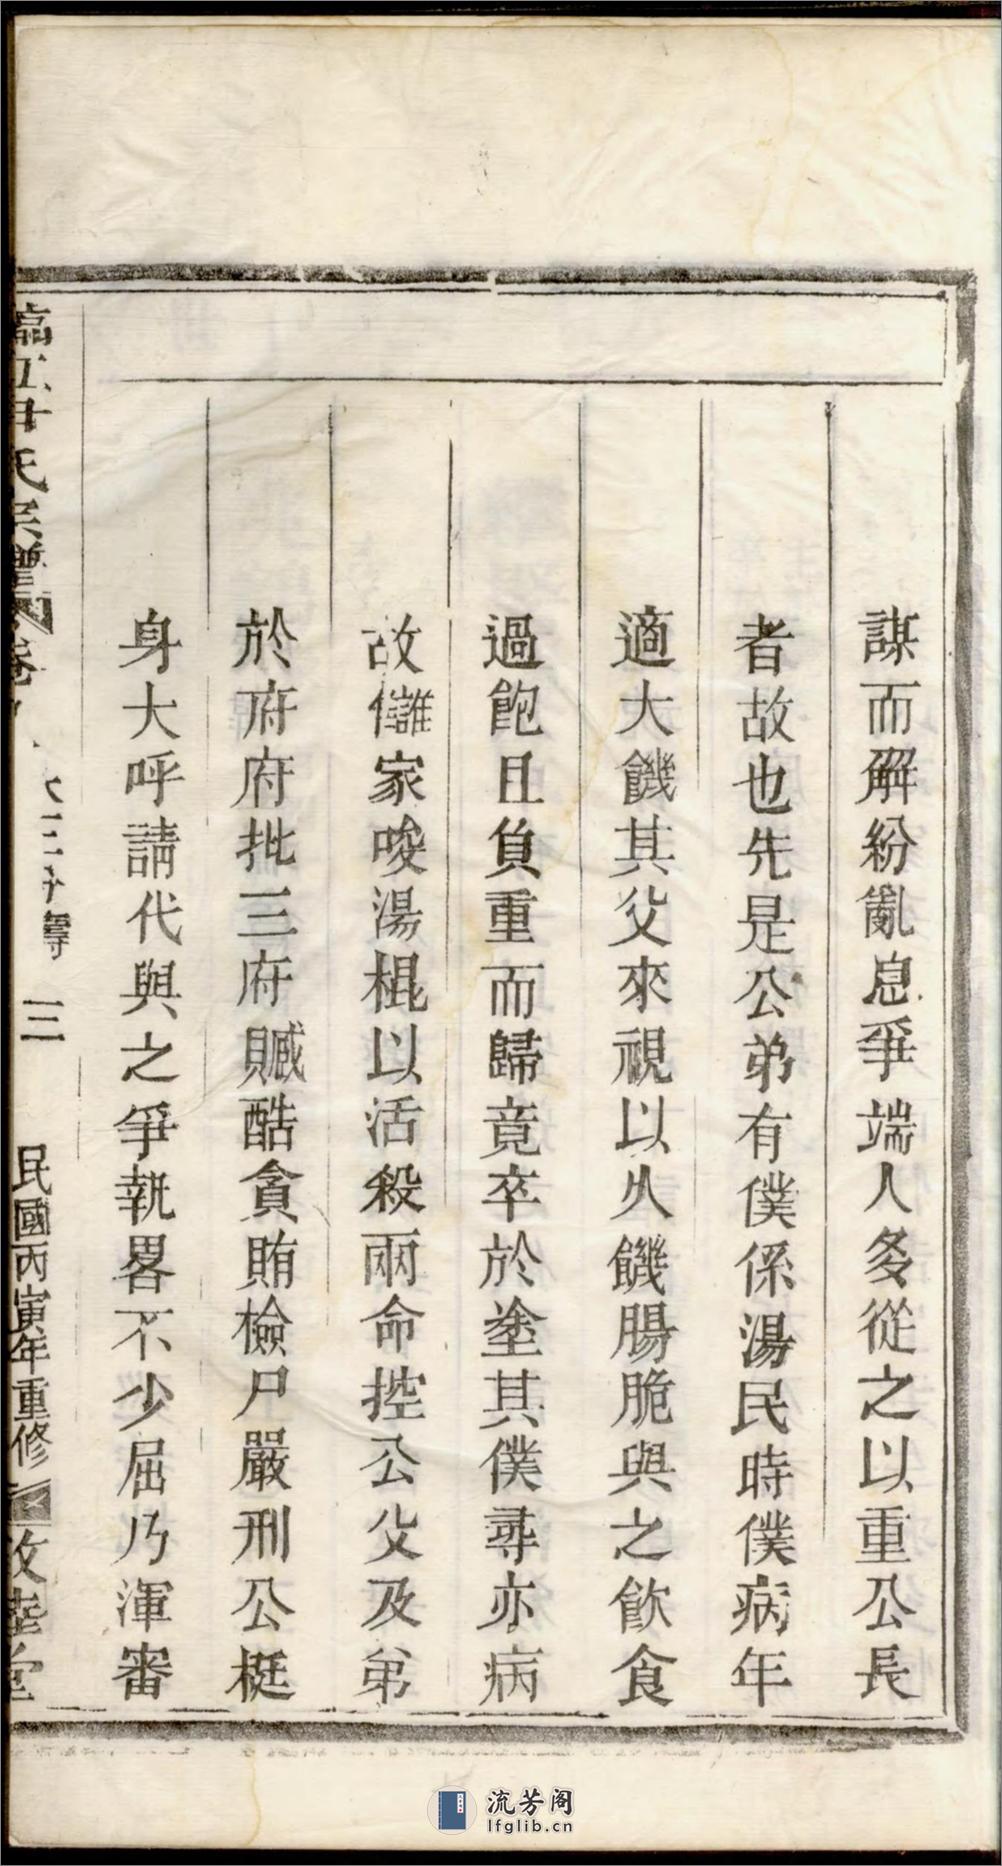 謀而解紛亂息爭端人多從之以重公長
者故也先是公弟有僕係湯民時僕病年
適大饑其父來視以久饑腸脆與之飲食
過飽且負重而歸竟卒於塗其僕尋亦病
故讎家唆湯棍以活殺兩命控公父及弟
於府府批三府贓酷貪賄檢尸嚴刑公梃
身大呼請代與之爭執畧不少屈乃渾審
氏宗譜 卷
三
民國丙寅年重修
堂
流芳阁
lfglib.cn